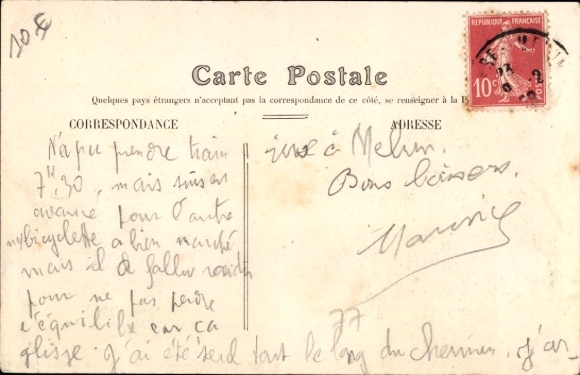 10 €
REPUBLIQUE FRANÇAISE
10c
POSTES
Carte Postale
Quelques pays étrangers n'acceptant pas la correspondance de ce côté, se renseigner à la
CORRESPONDANCE
ADRESSE
N'a pu prendre train
7h,30, mais suis en
avance pour l'autre
my bicyclette a bien marché
mais il a fallu
pour ne pas perdre
l'équilibre car ça
glisse. J'ai été seul tout le long du chemin. J'ar-
rive à Melun.
Bons baisers.
Maurice
77